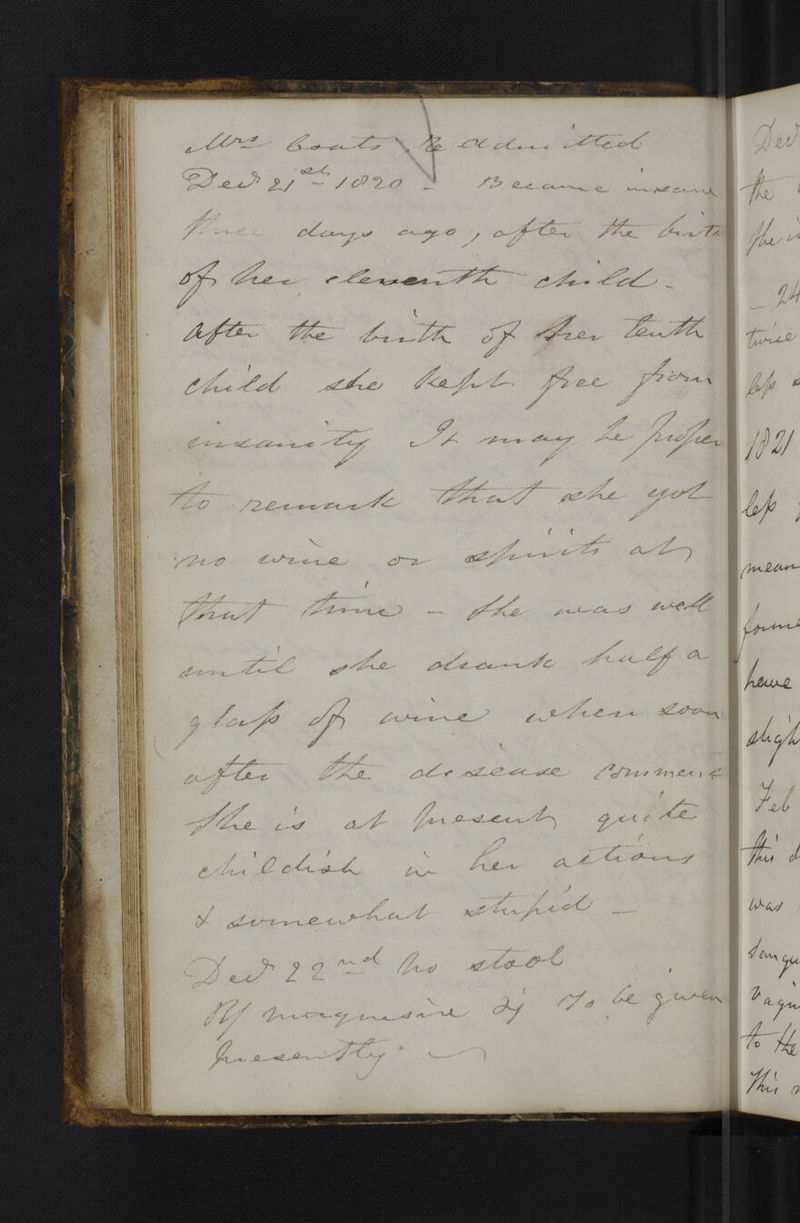 Mrs Coats Re admitted
Decr 21st 1820 - Became insane
three days ago, after the birth
of her eleventh child -
After the birth of her tenth
child she kept free from
insanity It may be proper
to remark that she got
no wine or spirits at
that time - She was well
until she drank half a
glass of wine when soon
after the disease commenc
She is at present quite
childish in her actions
& somewhat stupid -
Decr 22nd No stool
Rx magnesiae ʒj To be given
presently
Decr
the
the
24
twice
less
1821
less
mean
forme
have
sligh
Feb
this d
was
Sangu
Vagin
to the
This